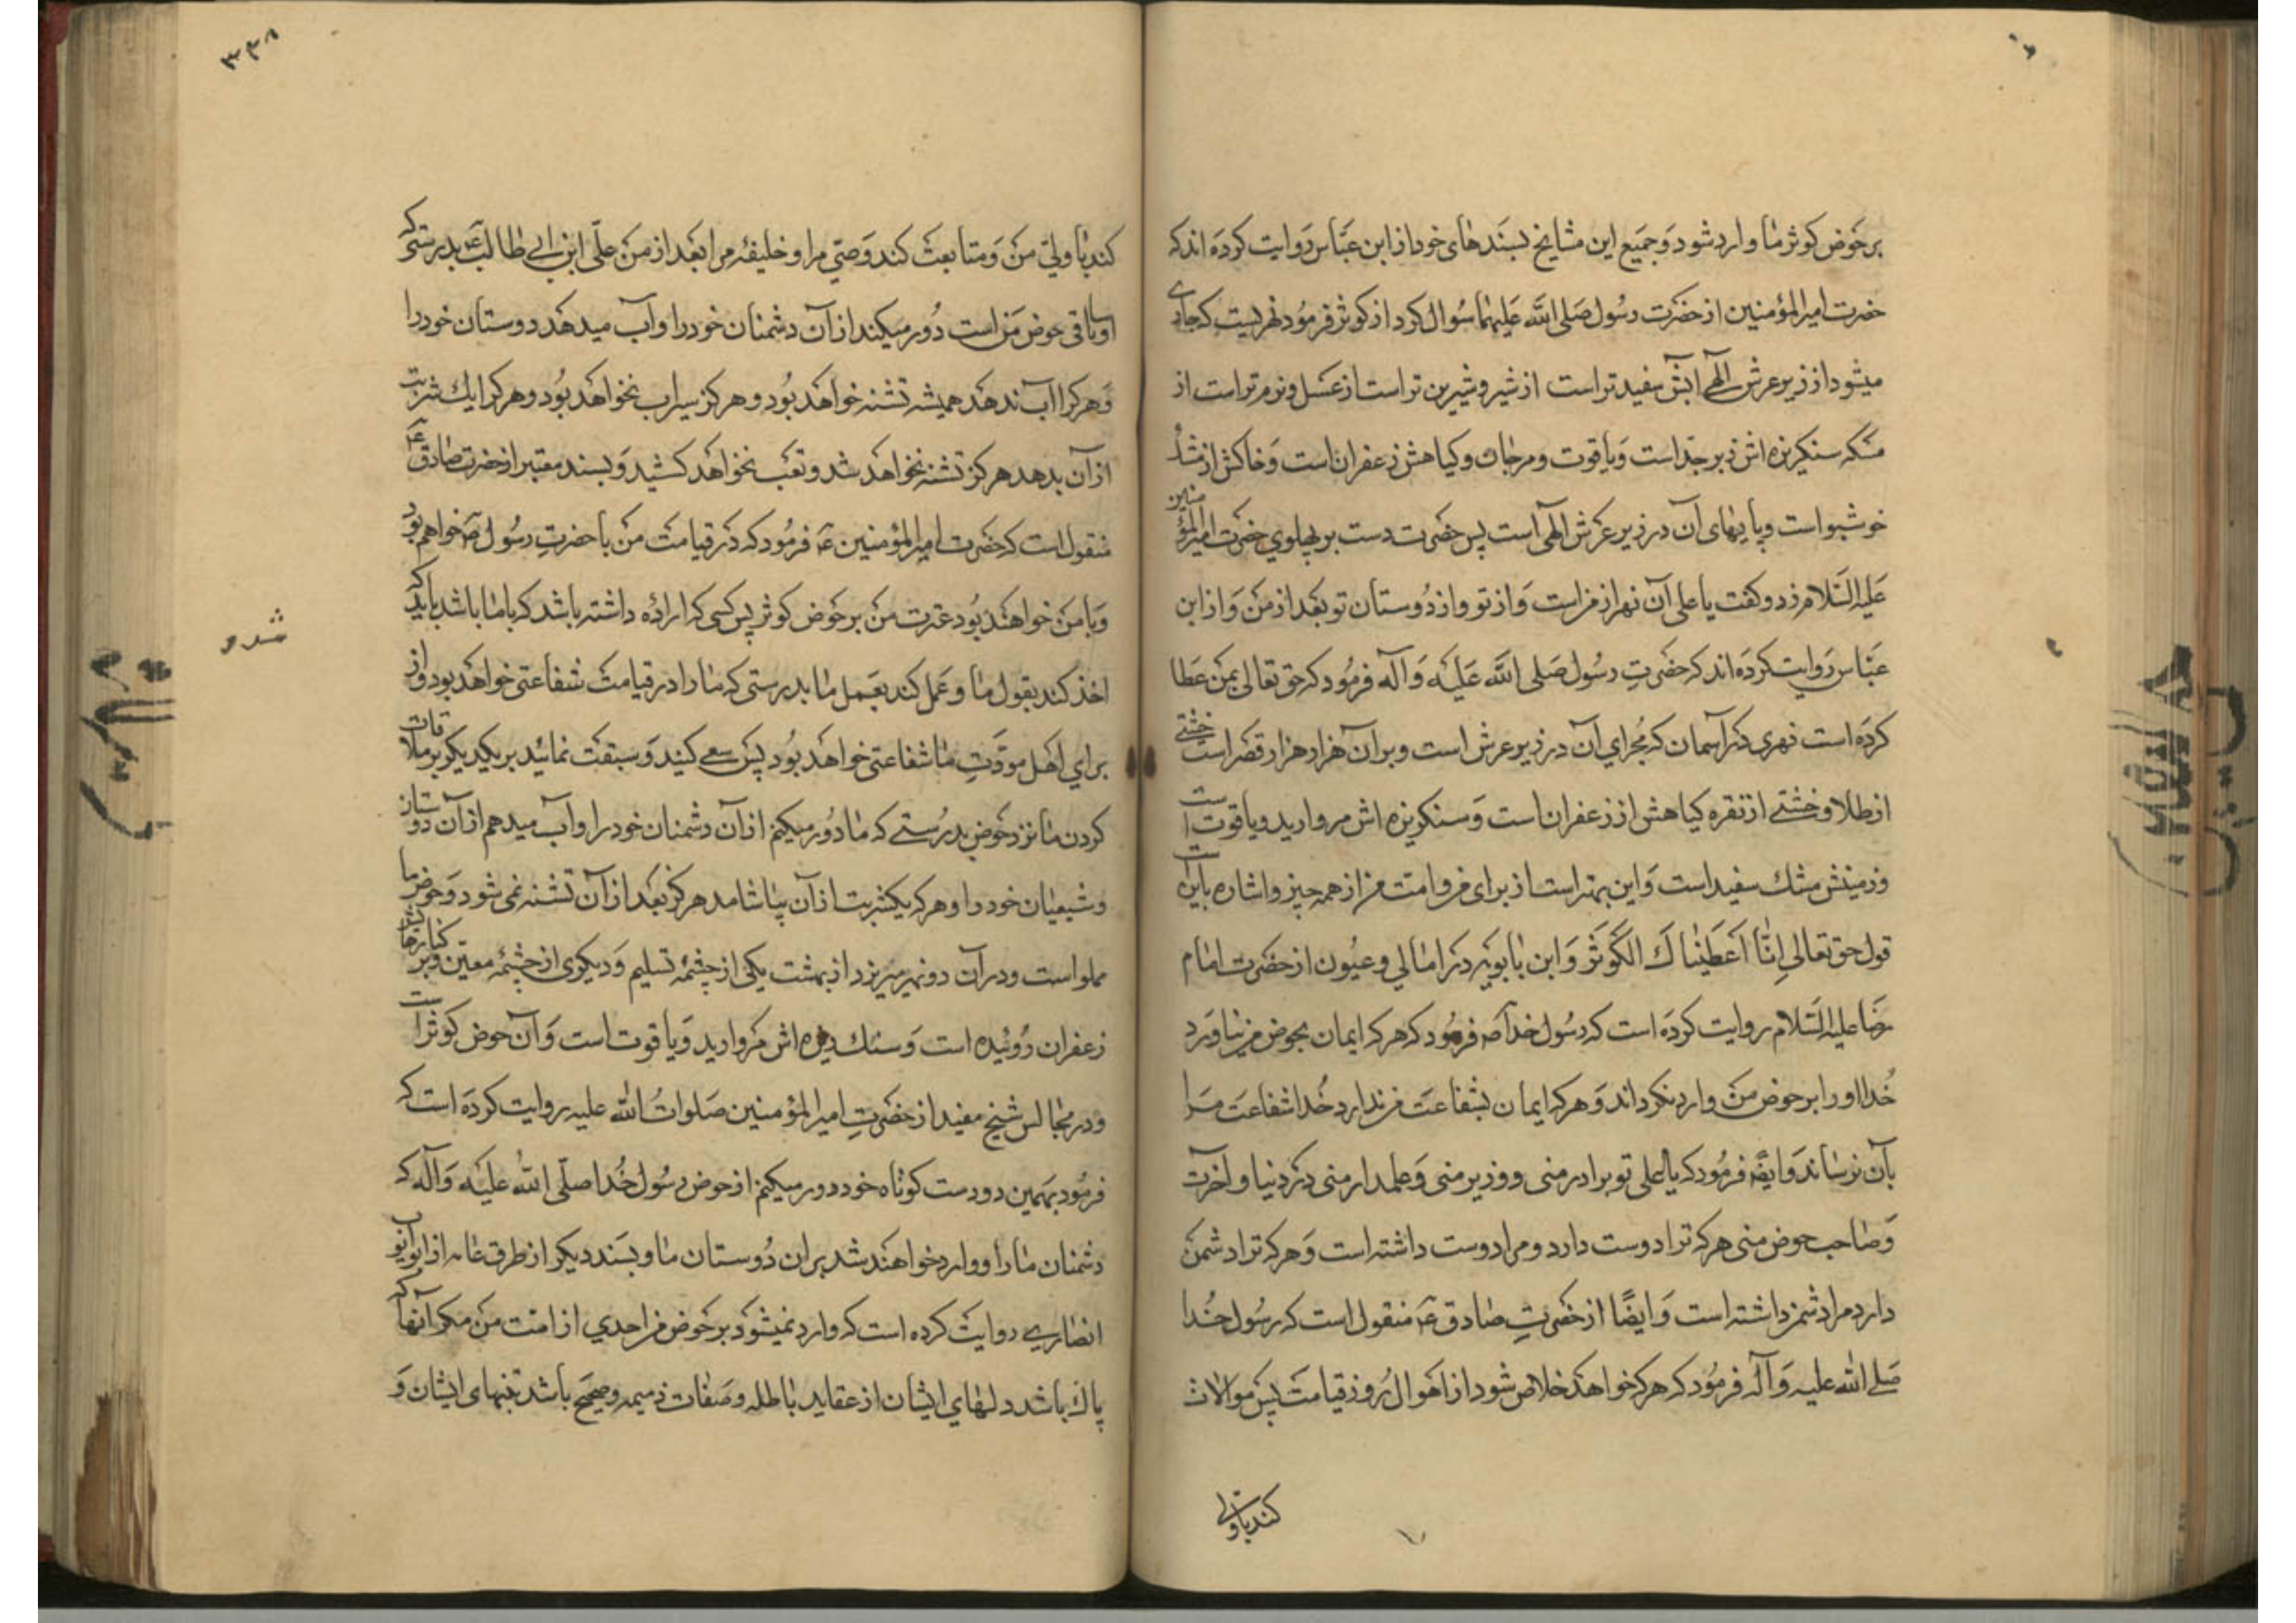 بر حوض کوثر ما وارد شود و جمیع این مشایخ بسندهای خود از ابن عباس روایت کرده اند که
حضرت امیرالمؤمنین از حضرت رسول صلی الله علیهما سؤال کرد از کوثر فرمود نهریست که جاری
میشود از زیر عرش الهی آبش سفیدتر است از شیر و شیرین تر است از عسل و نرم تر است از
مسکه سنکریزه اش زبرجد است و یاقوت و مرجان و کیاهش زعفران است و خاکش از مشک
خوشبو است و پایهای آن در زیر عرش الهی است پس حضرت دست بر پهلوی حضرت امیرالمؤمنین
علیه السلام زد و کفت یا علی آن نهر از من است و از تو و از دوستان تو بعد از من و از ابن
عباس روایت کرده اند که حضرت رسول صلی الله علیه و آله فرمود که حق تعالی بمن عطا
کرده است نهری در آسمان که مجرای آن در زیر عرش است و بر آن هزار هزار قصر است خشتی
از طلا و خشتی از نقره کیاهش از زعفران است و سنکریزه اش مروارید و یاقوت است
و زمینش مشک سفید است و این بهتر است از برای من و امت من از همه چیز و اشاره باین است
قول حق تعالی انا اعطیناک الکوثر و ابن بابویه در امالی و عیون از حضرت امام
رضا علیه السلام روایت کرده است که رسول خدا ص فرمود که هر که ایمان بحوض من نیاورد
خدا او را بر حوض من وارد نکرداند و هر که ایمان بشفاعت من ندارد خدا شفاعت مرا
بآن نرساند و ایضا فرمود که یا علی تو برادر منی و وزیر منی و علمدار منی در دنیا و آخرت
و صاحب حوض منی هر که ترا دوست دارد و مرا دوست داشته است و هر که ترا دشمن
دارد مرا دشمن داشته است و ایضًا از حضرت صادق ع منقول است که رسول خدا
صلی الله علیه و آله فرمود که هر که خواهد خلاص شود از اهوال روز قیامت پس موالات
کند با ولی
۳۳۸
کند با ولیّ من و متابعت کند وصیّ مرا و خلیفه مرا بعد از من علیّ ابن ابی طالب ع بدرستی که
او ساقی حوض من است دور میکند از آن دشمنان خود را و آب میدهد دوستان خود را
و هر که را آب ندهد همیشه تشنه خواهد بود و هرکز سیراب نخواهد بود و هر که را یک شربت
از آن بدهد هرکز تشنه نخواهد شد و تعب نخواهد کشید و بسند معتبر از حضرت صادق ع
منقول است که حضرت امیرالمؤمنین ع فرمود که در قیامت من با حضرت رسول ص خواهم بود
و با من خواهند بود عترت من بر حوض کوثر پس کسی که اراده داشته باشد که با ما باشد باید که
اخذ کند بقول ما و عمل کند بعمل ما بدرستی که ما را در قیامت شفاعتی خواهد بود و از
برای اهل مودّت ما شفاعتی خواهد بود پس سعی کنید و سبقت نمائید بر یکدیکر بر ملاقات
کردن ما نزد حوض بدرستی که ما دور میکنیم از آن دشمنان خود را و آب میدهم از آن دوستان
و شیعیان خود را و هر که یکشربت از آن بیاشامد هرکز بعد از آن تشنه نمی شود و حوض ما
مملو است و در آن دو نهر میریزد از بهشت یکی از چشمه تسلیم و دیکری از چشمه معین و بر کنارهاش
زعفران روئیده است و سنک ریزه اش مروارید و یاقوت است و آن حوض کوثر است
و در مجالس شیخ مفید از حضرت امیرالمؤمنین صلوات الله علیه روایت کرده است که
فرمود بهمین دو دست کوتاه خود دور میکنم از حوض رسول خدا صلّی الله علیه و آله که
دشمنان ما را و وارد خواهند شد بر آن دوستان ما و بسند دیکر از طرق عامه از ابو ایوب
انصاری روایت کرده است که وارد نمیشود بر حوض من احدی از امت من مکر آنها که
پاک باشد دلهای ایشان از عقاید باطله و صفات ذمیمه و صحیح باشد تنهای ایشان و